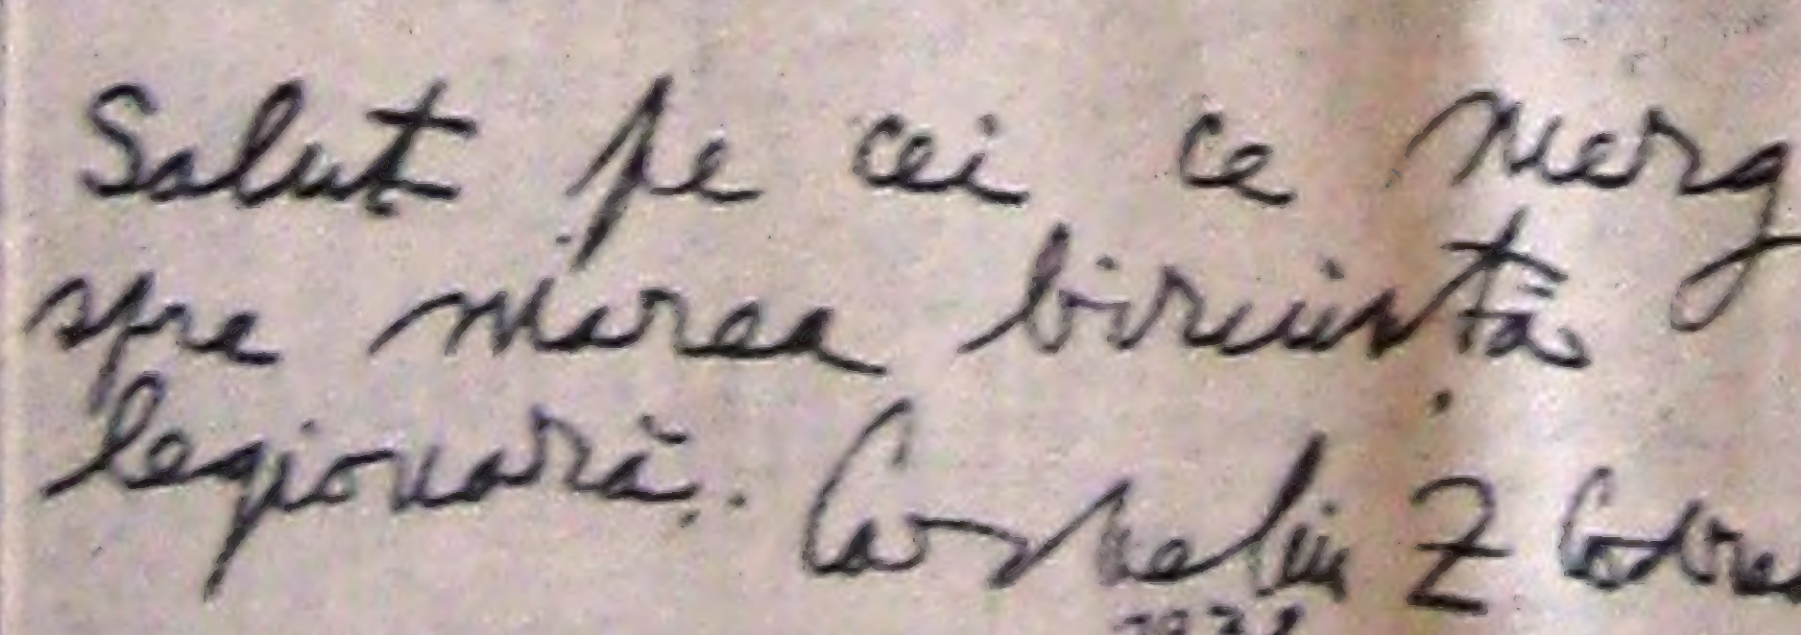 Salut pe cei ce merg
spre marea biruință
legionară. Corneliu Z Codrea